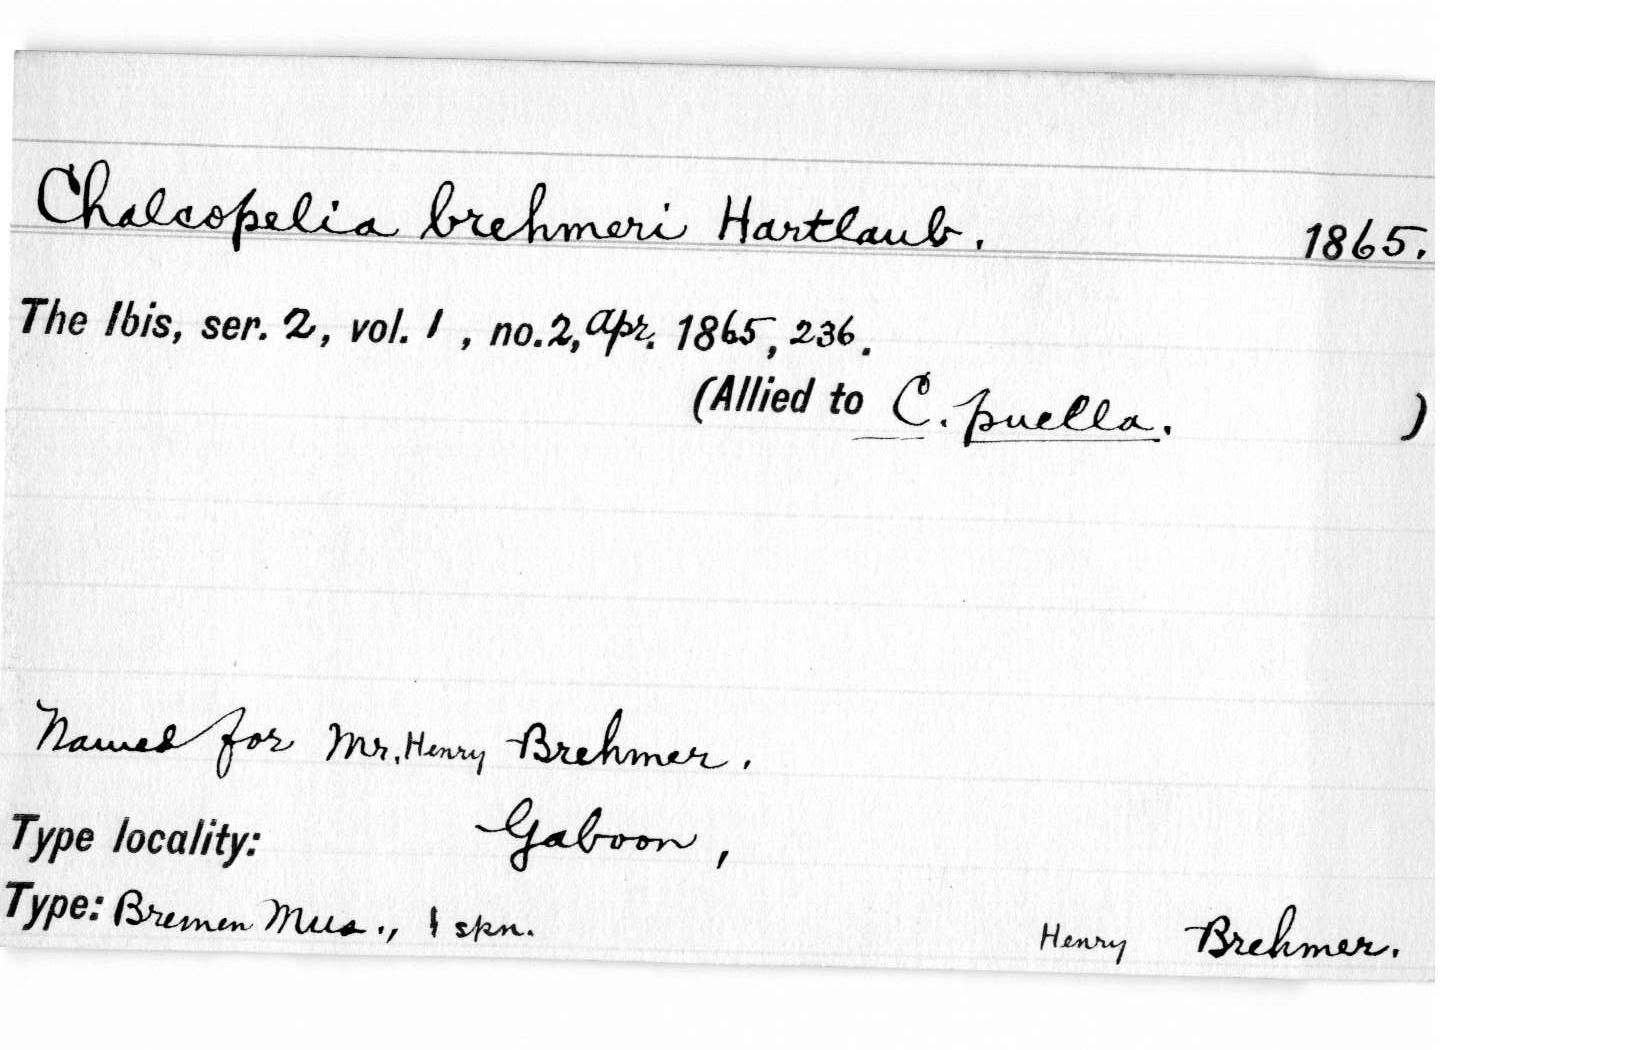 Chalcopelia brehmeri Hartlaub. 1865.
The Ibis, ser. 2, vol. 1, no. 2, Apr. 1865, 236.
(Allied to C. puella. )
Named for Mr. Henry Brehmer.
Type locality: Gaboon,
Type: Bremen Mus., 1 spn. Henry Brehmer.